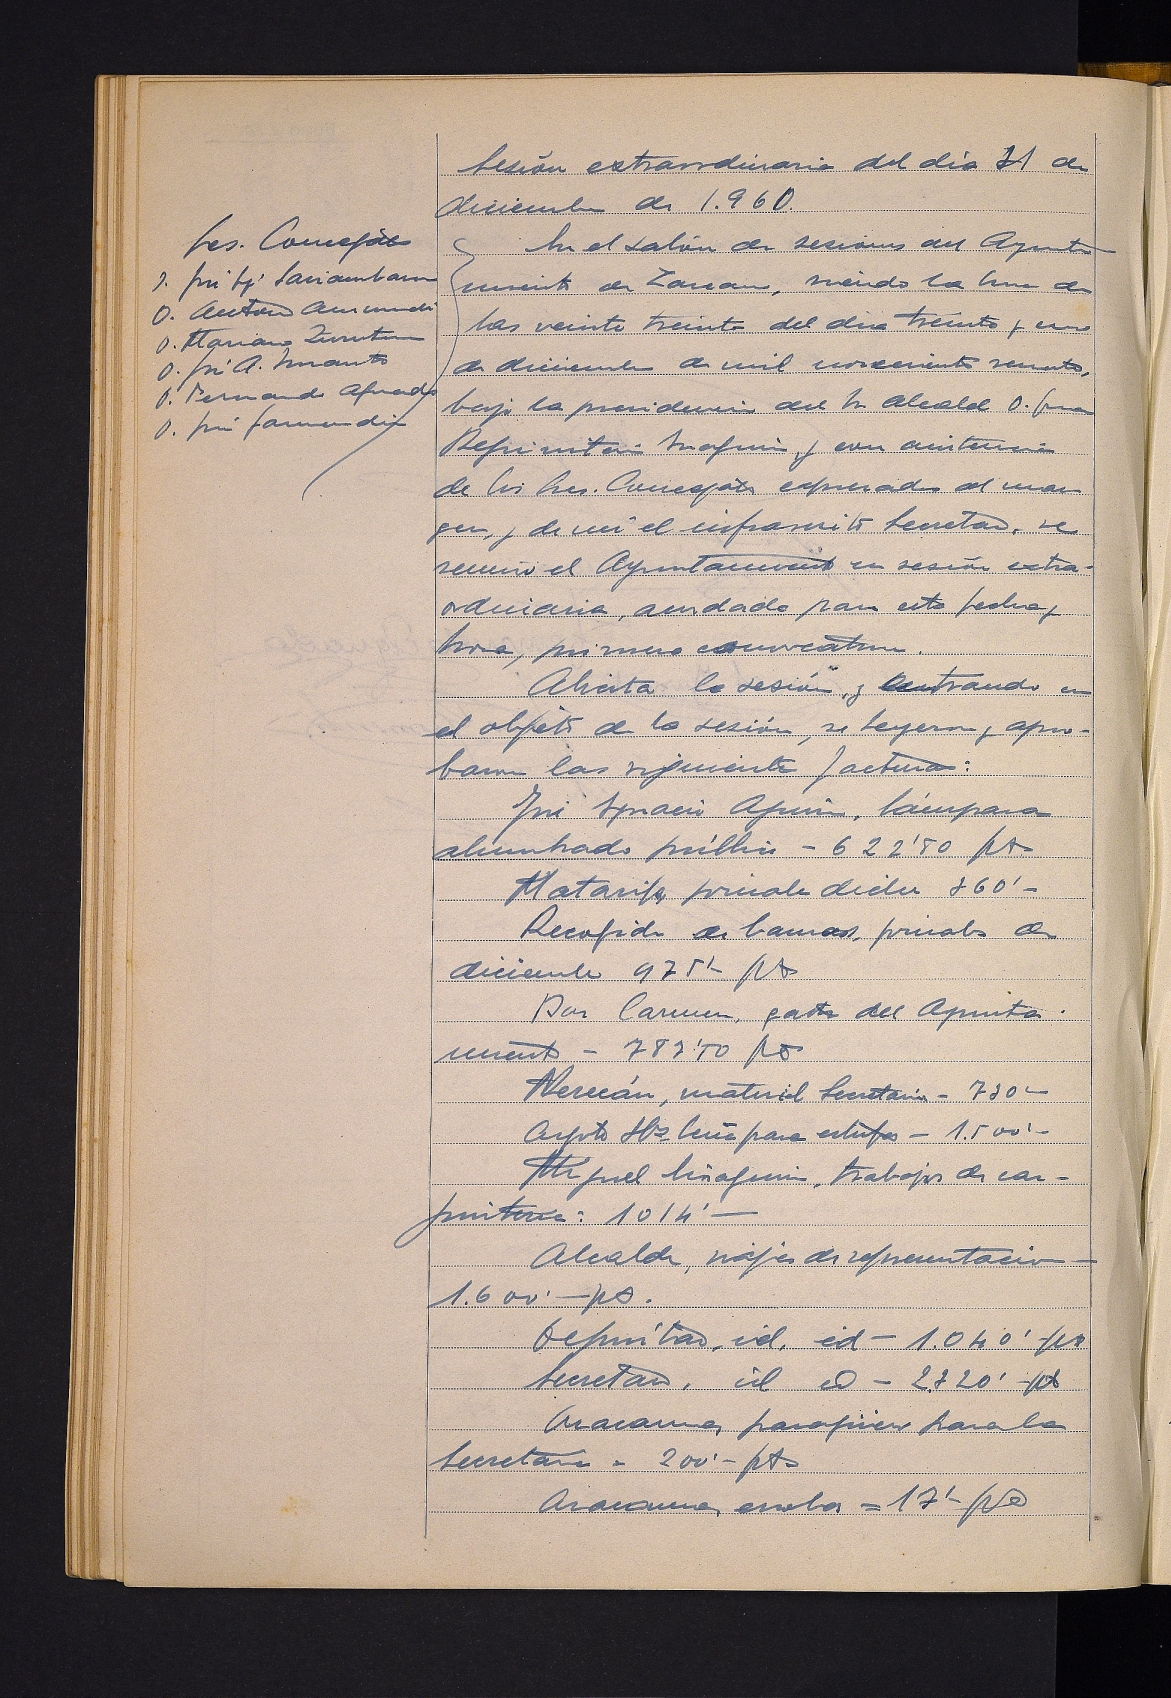 Sesión extraordinaria del día 31 de
diciembre de 1.960.
Sres. Concejales
D. José Ig. Sariambarena
D. Antonio Aurrundi
D. Mariano Zuruta
D. José A.
D. Fernando
D. José
En el salón de sesiones del Ayunta
miento de Zarauz, siendo la hora de
las veinte treinta del día treinta y uno
de diciembre de mil novecientos sesenta,
bajo la presidencia del Sr Alcalde D.
y con asistencia
de los Sres. Concejales expresados al mar
gen, y de mí el infrascrito Secretario, se
reunió el Ayuntamiento en sesión extra-
ordinaria, acordada para esta fecha y
hora, primera convocatoria.
Abierta la sesión, y entrando en
el objeto de la sesión, se leyeron y apro-
baron las siguientes facturas:
José Ignacio lámpara
alumbrado público - 622'50 pts
Matarife, jornales dicbre 360'-
Recogida de basuras, jornales de
diciembre 975'- pts
Bar Carmen, gastos del Ayunta-
miento - 787'50 pts
material Secretaria - 730'-
leña para estufas - 1.500'-
Miguel trabajos de car-
pintería: 1014'-
Alcalde, viajes de representación -
1.600'- pts.
Depositario, id. id - 1.040'- pts
Secretario, id id - 2.720'- pts
para la
Secretaria - 200'- pts
escoba = 17'- pts